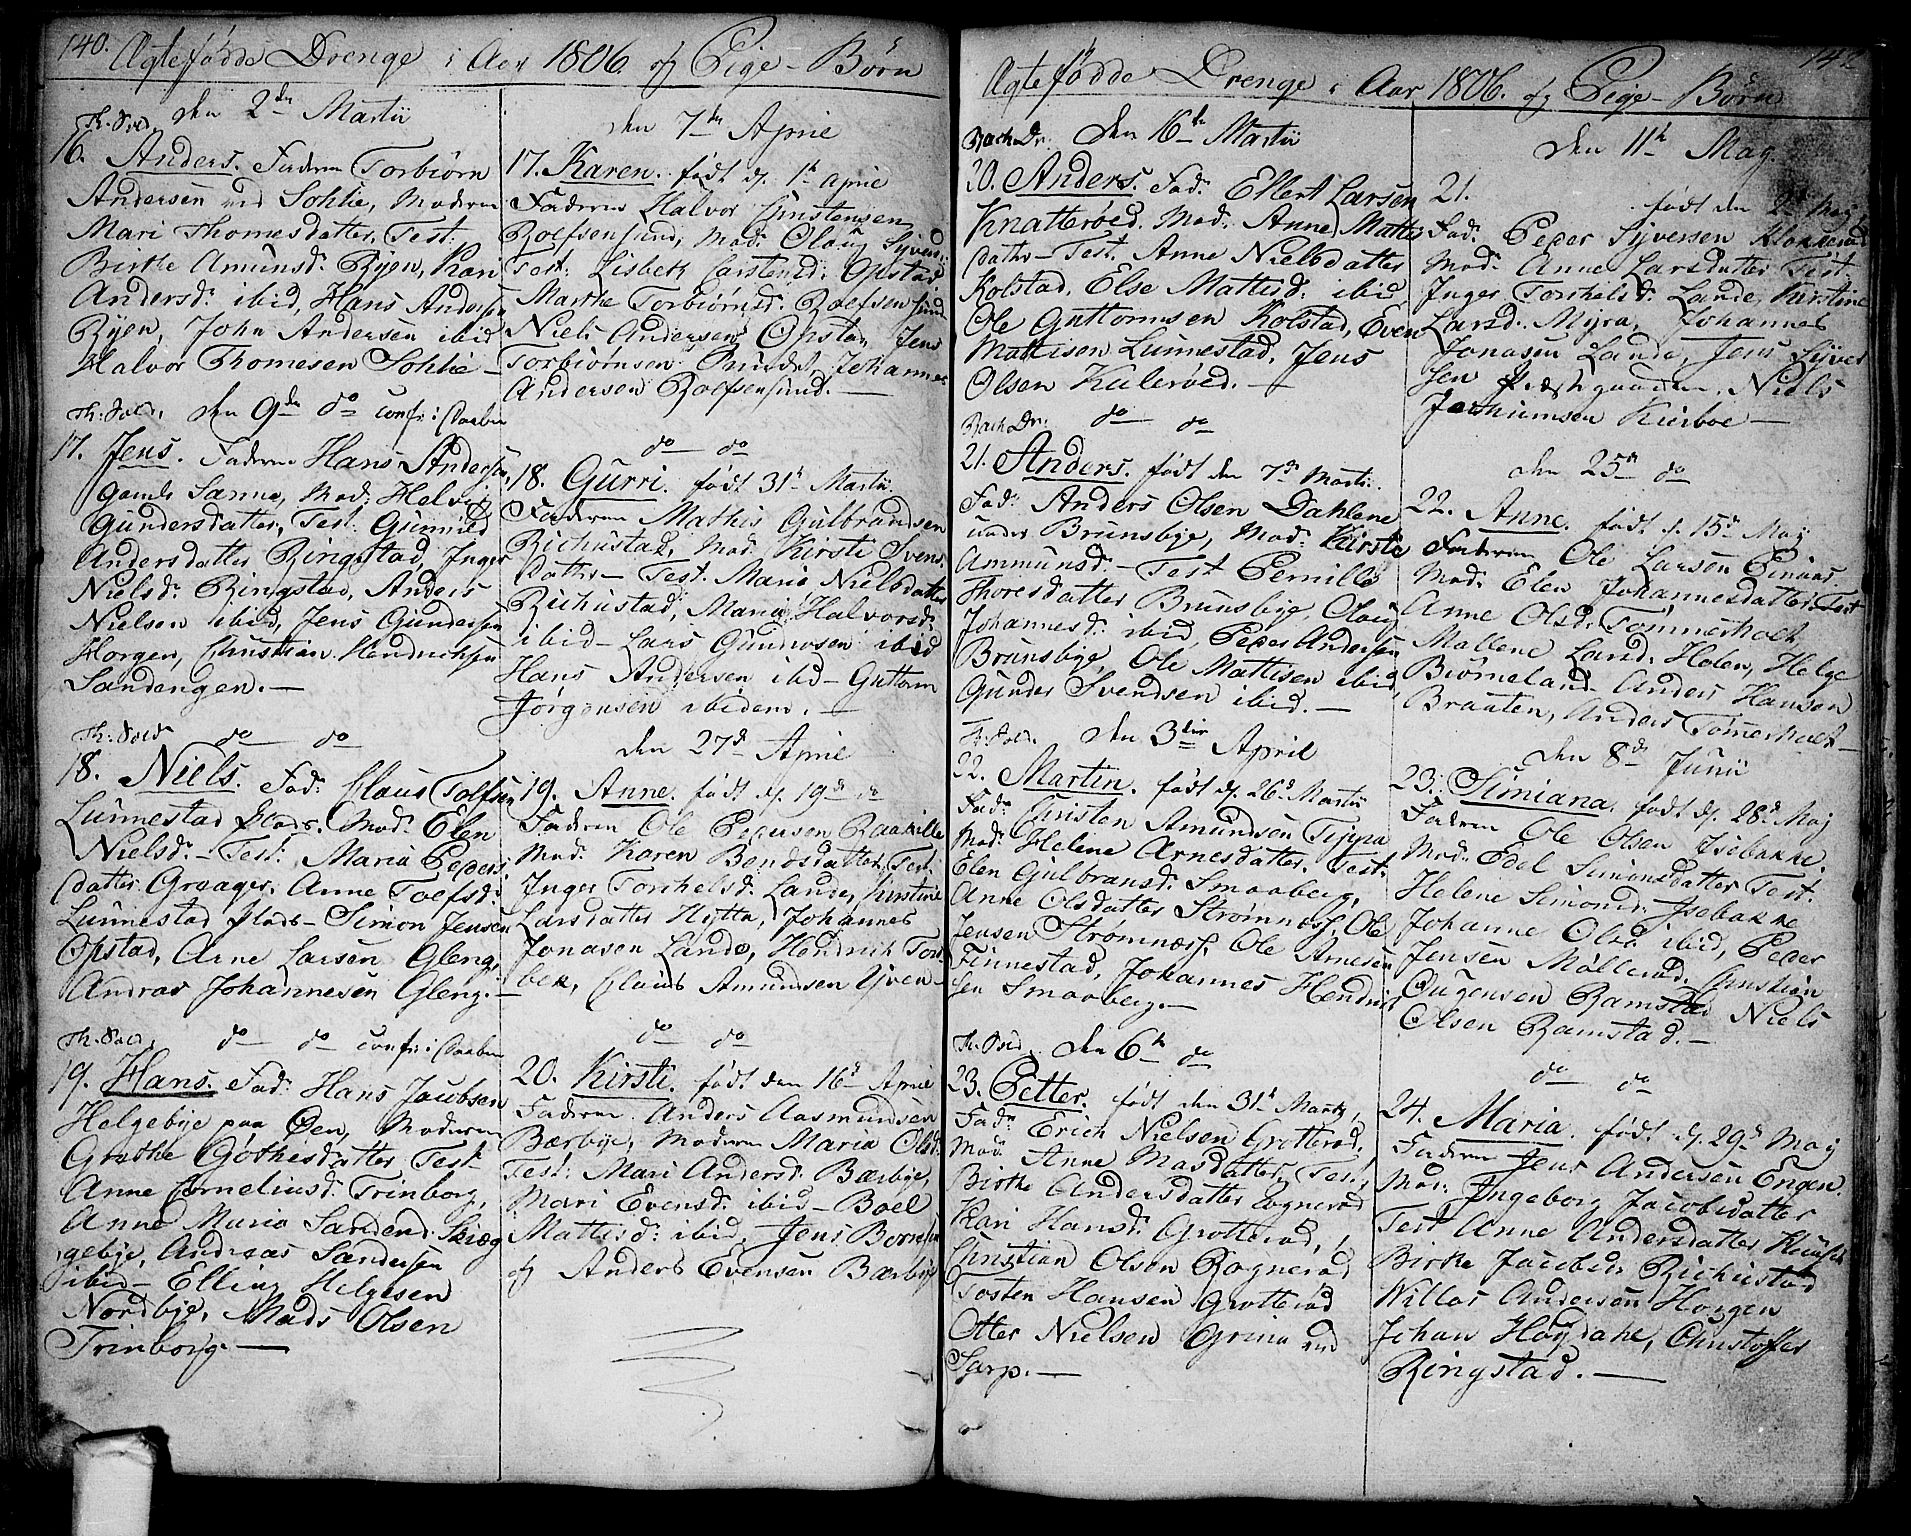 140.
Ægtefødde Drenge i Aar 1806. og Pige-Børn
Th: Sold. den 2den Martii
16. Anders. Faderen Torbiørn
Andersen ved Sohlie, Moderen
Mari Thomesdatter, Test:
Birthe Amunsd. Ryen, Kari
Andersd: ibid, Hans Andersen
Ryen, John Andersen ibid
Halvor Thomesen Sohlie-
Th: Sold. den 9de do confr: i Daaben
17. Jens. Faderen Hans Andersen,
Gamle Sanne, Mod: Helvig
Gundersdatter, Test: Gunnild
Andersdatter Ringstad, Inger
Nielsd: Ringstad, Anders
Nielsen ibid, Jens Gundersen
Horgen, Christian Hendrichsen
Sandengen.-
Th: Sold. do do
18. Niels. Fad: Claus Tolfsen
Lunnestad Plads. Mod: Elen
Nielsd:- Test: Maria Peders
datter Graager. Anne Toefsd:
Lunnestad Plads- Simon Jensen
Opstad, Arne Larsen Gleng,
Andras Johannesen Gleng.-
Th: Sold. do do confr: i Daaben
19. Hans. Fad: Hans Jacobsen
Helgebye paa Øen, Moderen
Grethe Gøthesdatter Test-
Anne Corneliusd: Trinborg,
Anne Maria Sanders: Skieg
gebye, Andreas Sandersen
ibid- Elling Helgesen
Nordbye, Mads Olsen
Trinborg.-
den 7de Aprie
17. Karen. født d. 1te Aprie
Faderen Halvor Christensen
Roefsensund, Mod: Olaug Syverd:
Test: Lisbeth Carstensd: Opstad
Marthe Torbiørnsd: Roefsensund
Niels Andersen Opstad, Jens
Torbiørnsen Sundet, Johannes
Andersen Roefsensund.-
do do
18. Gurri. født 31te Martii
Faderen Mathis Gulbrandsen
Richustad, Mod: Kirsti Svens
datter- Test. Maria Nielsdatter
Richustad, Maria Halvorsd:
ibid- Lars Gundersen ibid
Hans Andersen ibid- Guttorm
Jørgensen ibidem.-
den 27de Aprie
19. Anne. født d. 19de do
Faderen Ole Pedersen Raakille
Mod: Karen Bendsdatter, Test:
Inger Torchelsd: Lande, Kirstine
Larsdatter Hytta, Johannes
Jonasen Lande, Hendrich Tors
bek, Claus Amundsen Yven-
do do
20. Kirsti. født den 16de Aprie
Faderen Anders Aasmundsen
Bærbye, Moderen Maria Olsd:
Test: Mari Andersd: Bærbye,
Mari Evensd: ibid- Boel
Mattisd: ibid, Jens Bernsen
og Anders Evensen Bærbye
Ægtefødde Drenge i Aar 1806. og Pige-Børn
Bach Dr. den 16de Martii
20. Anders. Fad: Ellert Larsen
Knatterød. Mod: Anne Mattis
datter- Test. Anne Nielsdatter
Kolstad, Else Mattisd: ibid
Ole Guttormsen Kolstad, Even
Mattisen Lunnestad, Jens
Olsen Kulerød.-
Bach Dr. do do
21. Anders. født den 7de Marti.
Fad: Anders Olsen Dahlene
under Brunsbye, Mod: Kirstie
Ammunsd:- Test Pernille
Thoresdatter Brunsbye, Olaug
Johannesd: ibid, Peder Andersen
Brunsbye, Ole Mattisen ibid,
Gunder Svendsen ibid.-
Th: Sold. den 3die April
22. Martin. født d. 26de Martii
Fad: Christen Amundsen
Mod: Helene Arnesdatter. Test.
Elen Gulbransd: Smaaberg,
Anne Olsdatter Strømnæss, Ole
Jensen Strømnæss, Ole Arnesen
Finnestad, Johannes Hendrich
sen Smaaberg.-
Th. Sold. den 6te do
23. Petter. født den 31te Marti,
Fad: Erich Nielsen Grotterød,
Mod: Anne Masdatter, Test,
Birthe Andersdatter Rognerød
Kari Hansd: Grotterød,
Christian Olsen Rognerød
Tosten Hansen Grotterød
Otter Nielsen Grina ved
Sarp.-
den 11te May
21. født den 2den May
Fad: Peder Syversen Klokkerød
Mod: Anne Larsdatter Test-
Inger Torchelsd: Lande, Kirstine
Larsd: Myra, Johannes
Jonasen Lande, Jens Syver
sen Præstegaarden, Niels
Jochumsen Kirboe-
den 25de do
22. Anne. født d. 15de May
Faderen Ole Larsen
Mod: Elen Johannesdatter, Test
Anne Olsd: Tømmerholt
Mallene Larsd: Holen, Helge
Biørneland- Anders Hansen
Braaten, Anders Tømerholt-
den 8de Junii
23. Simiana. født d. 28de May
Faderen Ole Olsen Isebakke.
Mod: Edel Simonsdatter Test.
Helene Simonsd: Isebakke
Johanne Olsd: ibid, Peder
Jensen Møllerød, Christian
Ougensen Ramstad Niels
Olsen Ramstad.-
do do
24. Maria. født d. 29de May
Faderen Jens Andersen Engen.
Mod: Ingeborg Jacobsdatter
Test Anne Andersdatter
Birthe Jacobsd: Richustad
Willas Andersen Horgen
Johan Høydahl, Christoffer
Ringstad.-